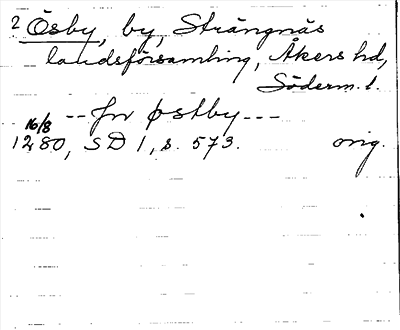 2 Ösby, by, Strängnäs
landsförsamling, Åkers hd,
Söderm. l.
-- jn østby ---
16/8
1280, SD 1, s. 573. orig.